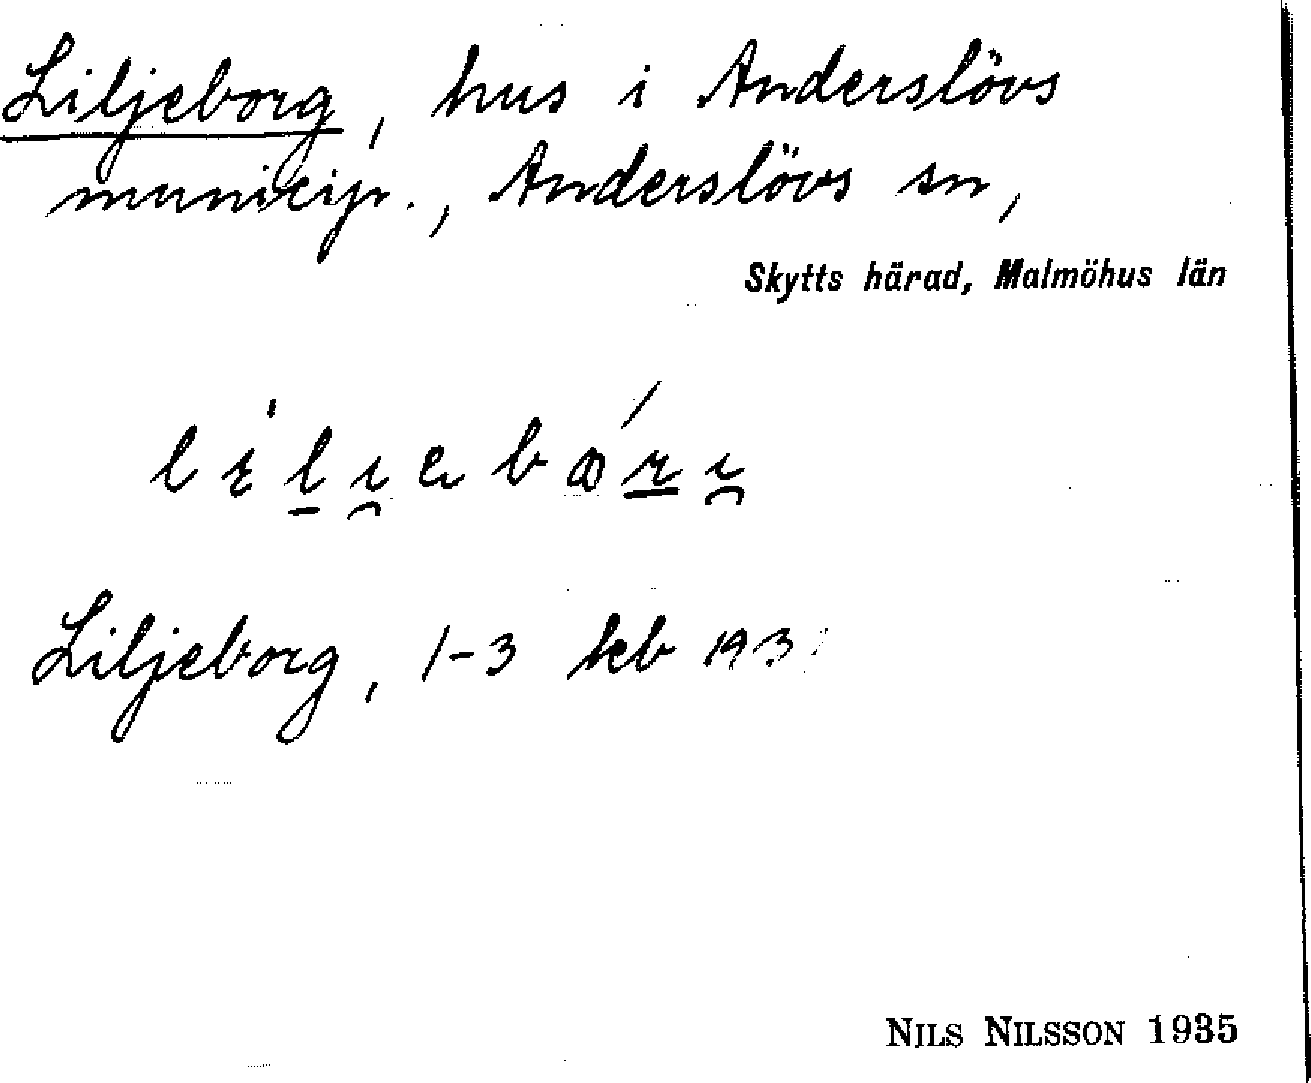 Liljeborg, hus i Anderslövs
municip., Anderslövs sn,
Skytts härad, Malmöhus län
Liljeborg, 1-3 keb 193
NILS NILSSON 1935